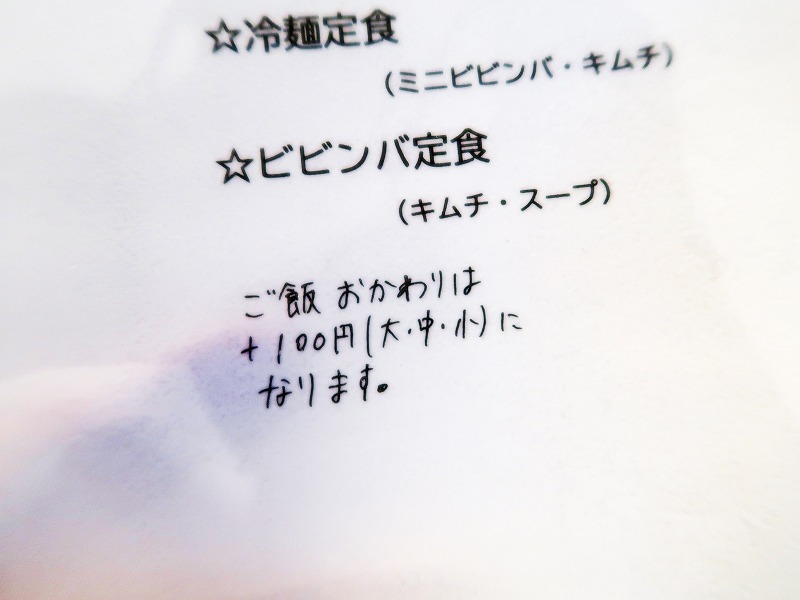 ☆冷麺定食
(ミニビビンバ・キムチ)
☆ビビンバ定食
(キムチ・スープ)
ご飯 おかわりは
+100円(大・中・小)に
なります。